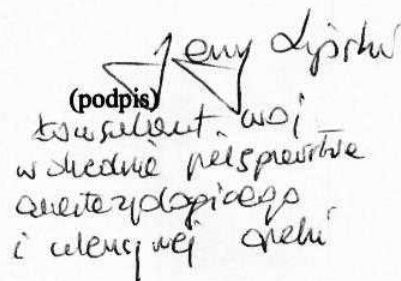 Jerzy Lipski
(podpis)
konsultant woj
w dziedzinie pielęgniarstwa
anestezjologicznego
i intensywnej opieki